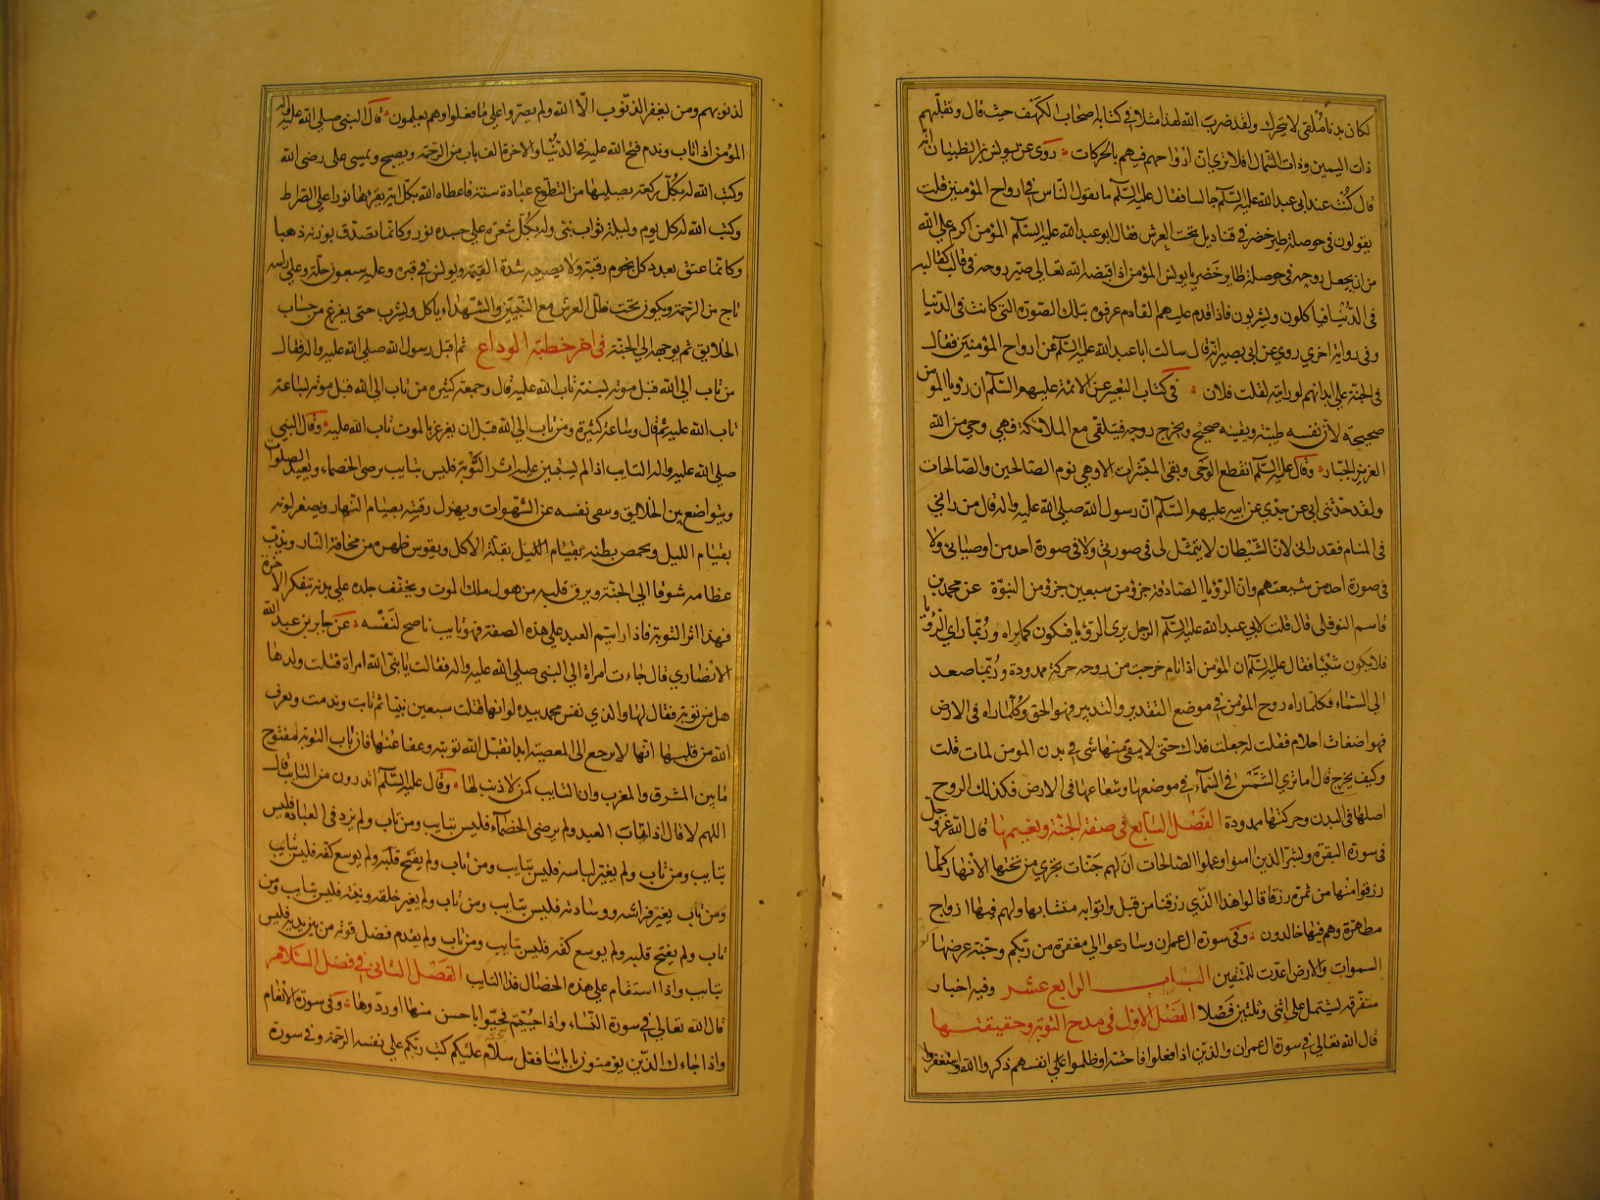 لكان بدنا ملقى لا يتحرك ولقد ضرب الله لهذا مثلا في كتابه اصحاب الكهف حيث قال ونقلبهم
ذات اليمين وذات الشمال افلا ترى ان ارواحهم فيهم بالحركات روى عن يونس بن ظبيان انه
قال كنت عند ابى عبد الله عليه السلم جالسا فقال عليه السلم ما تقول الناس في ارواح المؤمنين قلت
يقولون فى حوصلة طير خضر في قناديل تحت العرش فقال ابو عبد الله عليه السلم المؤمن اكرم على الله
من ان يجعل روحه فى حوصلة طاير خضر يا يونس المؤمن اذا قبضه الله تعالى صير روحه فى قالب كقالبه
فى الدنيا فياكلون ويشربون فاذا قدم عليهم القادم عرفوه بتلك الصورة التى كانت فى الدنيا
وفى رواية اخرى روى عن ابى بصير انه قال سالت ابا عبد الله عليه السلم عن ارواح المؤمنين فقال
فى الجنة على ابدانهم لو رايته لقلت فلان في كتاب التعبير عن الائمة عليهم السلم ان رؤيا المؤمن
صحيحة لان نفسه طيبة ويقينه صحيح ويخرج روحه فيتلقى مع الملائكة فهى وحى من الله
العزيز الجبار وقال عليه السلم انقطع الوحى وبقى المبشرات الا وهى نوم الصالحين والصالحات
ولقد حدثنى ابى عن جدى عن ابيه عليهم السلم ان رسول الله صلى الله عليه واله قال من رانى
فى المنام فقد رانى لان الشيطان لا يتمثل لى فى صورتى ولا فى صورة احد من اوصيائى ولا
فى صورة احد من شيعتهم وان الرؤيا الصادقة جزؤ من سبعين جزؤ من النبوة عن محمد بن
قاسم النوفلى قال قلت لابى عبد الله عليه السلم الرجل يرى الرؤيا فيكون كما يراه وربما راى الرؤيا
فلا يكون شيئا فقال عليه السلم ان المؤمن اذا نام خرجت من روحه حركة ممدودة وربما صعد
الى السماء فكلما راه روح المؤمن في موضع التقدير والتدبير فهو الحق وكلما راه فى الارض
فهو اضغاث احلام فقلت له جعلت فداك حتى لا يبقى منها شى فى بدن المومن لمات قلت
وكيف يخرج قال اما ترى الشمس فى السماء في موضعها وشعاعها فى الارض فكذلك الروح
اصلها فى البدن وحركتها ممدودة الفصل السابع فى صفة الجنة ونعيمها قال الله عز وجل
فى سورة البقرة وبشر الذين امنوا وعملوا الصالحات ان لهم جنات تجرى من تحتها الانهار كلما
رزقوا منها من ثمرة رزقا قالوا هذا الذى رزقنا من قبل واتوا به متشابها ولهم فيها ازواج
مطهرة وهم فيها خالدون وفى سورة ال عمران وسارعوا الى مغفرة من ربكم وجنة عرضها
السموات والارض اعدت للمتقين الباب الرابع عشر وفيه اخبار
متفرقه يشتمل على اثنى وثلثين فصلا الفصل الاول فى مدح التوبة وحقيقتها
قال الله تعالى فى سورة ال عمران والذين اذا فعلوا فاحشة او ظلموا على انفسهم ذكروا الله واستغفروا
لذنوبهم ومن يغفر الذنوب الا الله ولم يصروا على ما فعلوا وهم يعلمون قال النبى صلى الله عليه واله
المؤمن اذا تاب وندم فتح الله عليه فى الدنيا والاخرة الف باب من الرحمة ويصبح ويمسى على رضى الله
وكتب الله له بكل ركعة يصليها من التطوع عبادة سنة فاعطاه الله بكل اية يقراها نورا على الصراط
وكتب الله له كل يوم وليلة ثواب نبى وله بكل شعرة على جسده نور وكانما تصدق بوزنه ذهبا
وكانما عتق بعدد كل نجوم رقبة ولا يصيبه شدة القيمة ويونس فى قبره وعليه سبعون حلة وعلى راسه
تاج من الرحمة ويكون تحت ظل العرش مع النبيين والشهداء ياكل ويشرب حتى يفرغ من حساب
الخلايق ثم يوجهه الى الجنة فى اخر خطبة الوداع ثم اقبل رسول الله صلى الله عليه واله فقال
من تاب الى الله قبل موته بسنة تاب الله عليه قال وجمعة كثيره من تاب الى الله قبل موته بساعة
تاب الله عليه ثم قال وساعة كثيرة ومن تاب الى الله قبل ان يغرغر بالموت تاب الله عليه وقال النبى
صلى الله عليه واله التايب اذا لم يستبين عليه اثر التوبة فليس بتايب يرضى الخصماء ويعيد الصلوات
ويتواضع بين الخلايق وسقى نفسه عن الشهوات ويهزل رقبته بصيام النهار ويصفر لونه
بقيام الليل ويخمص بطنه بقلة الاكل ويقوس ظهره من مخافة النار ويذيب
عظامه شوقا الى الجنة ويرق قلبه من هول ملك الموت ويجفف جلده على بدنه بتفكر الاخرة
فهذا اثر التوبة فاذا رايتم العبد على هذه الصفة فهو تايب ناصح لنفسه عن جابر بن عبد الله
الانصارى قال جاءت امراة الى النبى صلى الله عليه واله فقالت يا نبى الله امراة قتلت ولدها
هل من توبة فقال لها والذى نفس محمد بيده لو انها قتلت سبعين نبيا ثم تابت وندمت ويعرف
الله من قلبها انها لا يرجع الى المعصية ابدا تقبل الله توبته وعفا عنها فان باب التوبة مفتوح
ما بين المشرق والمغرب وان التايب كمن لا ذنب لها وقال عليه السلم اتدرون من التايب قال
اللهم لا قال اذا تاب العبد ولم يرضى الخصماء فليس بتايب ومن تاب ولم يزد فى العبادة فليس
بتايب ومن تاب ولم يغير لباسه فليس بتايب ومن تاب ولم يفتح قلبه ولم يوسع كفه فليس بتايب
ومن تاب يغير فراشه ووسادته فليس بتايب ومن تاب ولم يغير خلقه ونيته فليس بتايب ومن
تاب ولم يفتح قلبه ولم يوسع كفه فليس بتايب ومن تاب ولم يقدم فضل قوته من بين يديه فليس
بتايب واذا استقام على هذه الخصال فذا التايب الفصل الثانى فى فضل السلام
قال الله تعالى فى سورة النساء واذا حييتم فحيوا باحسن منها او ردوها وفى سورة الانعام
واذا جاءك الذين يؤمنون باياتنا فقل سلام عليكم كتب ربكم على نفسه الرحمة وفى سورة